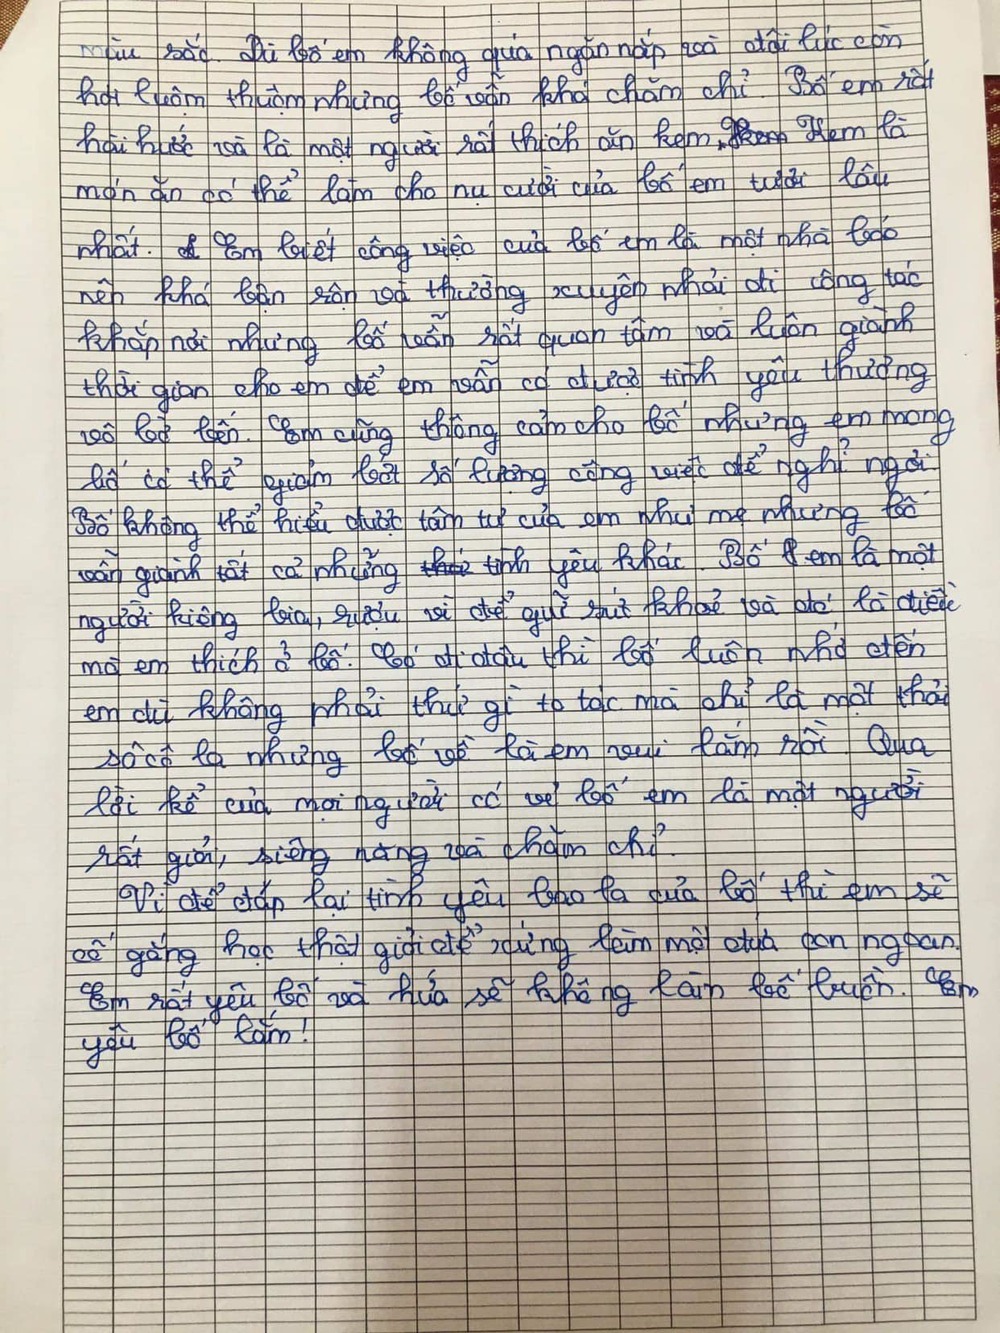 màu sắc. Dù bố em không quá ngăn nắp và đôi lúc còn
hơi luộm thuộm nhưng bố vẫn khá chăm chỉ. Bố em rất
hài hước và là một người rất thích ăn kem, Kem là
món ăn có thể làm cho nụ cười của bố em tươi lâu
nhất. Em biết công việc của bố em là một nhà báo
nên khá bận rộn và thường xuyên phải đi công tác
khắp nơi nhưng bố vẫn rất quan tâm và luôn giành
thời gian cho em để em vẫn có được tình yêu thương
vô bờ bến. Em cũng thông cảm cho bố nhưng em mong
bố có thể giảm bớt số lượng công việc để nghỉ ngơi.
Bố không thể hiểu được tâm tư của em như mẹ nhưng bố
vẫn giành tất cả những tình yêu khác. Bố em là một
người kiêng bia, rượu vì để giữ sức khoẻ và đó là điều
mà em thích ở bố. Bố đi đâu thì bố luôn nhớ đến
em dù không phải thứ gì to tác mà chỉ là một thỏi
sôcô la nhưng bố về là em vui lắm rồi. Qua
lời kể của mọi người có vẻ bố em là một người
rất giỏi, siêng năng và chăm chỉ.
Vì để đáp lại tình yêu bao la của bố thì em sẽ
cố gắng học thật giỏi để xứng làm một đứa con ngoan.
Em rất yêu bố và hứa sẽ không làm bố buồn. Em
yêu bố lắm!